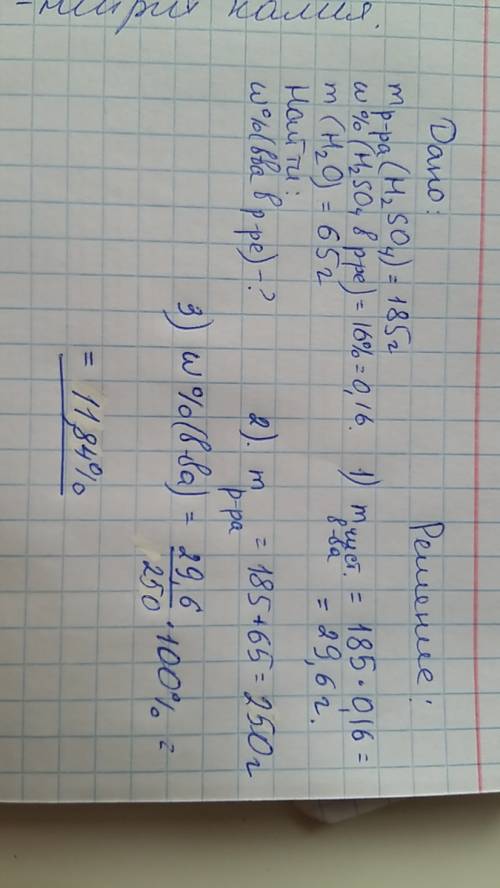 -нитрит калия.
Дано:
m р-ра (H₂SO₄) = 185г
w% (H₂SO₄ в р-ре) = 16% = 0,16.
m (H₂O) = 65г
Найти:
w% (в-ва в р-ре) - ?
Решение:
1) m чист. в-ва = 185 · 0,16 =
= 29,6 г.
2). m р-ра = 185 + 65 = 250г
3) w% (в-ва) = 29,6 / 250 · 100% =
= 11,84%